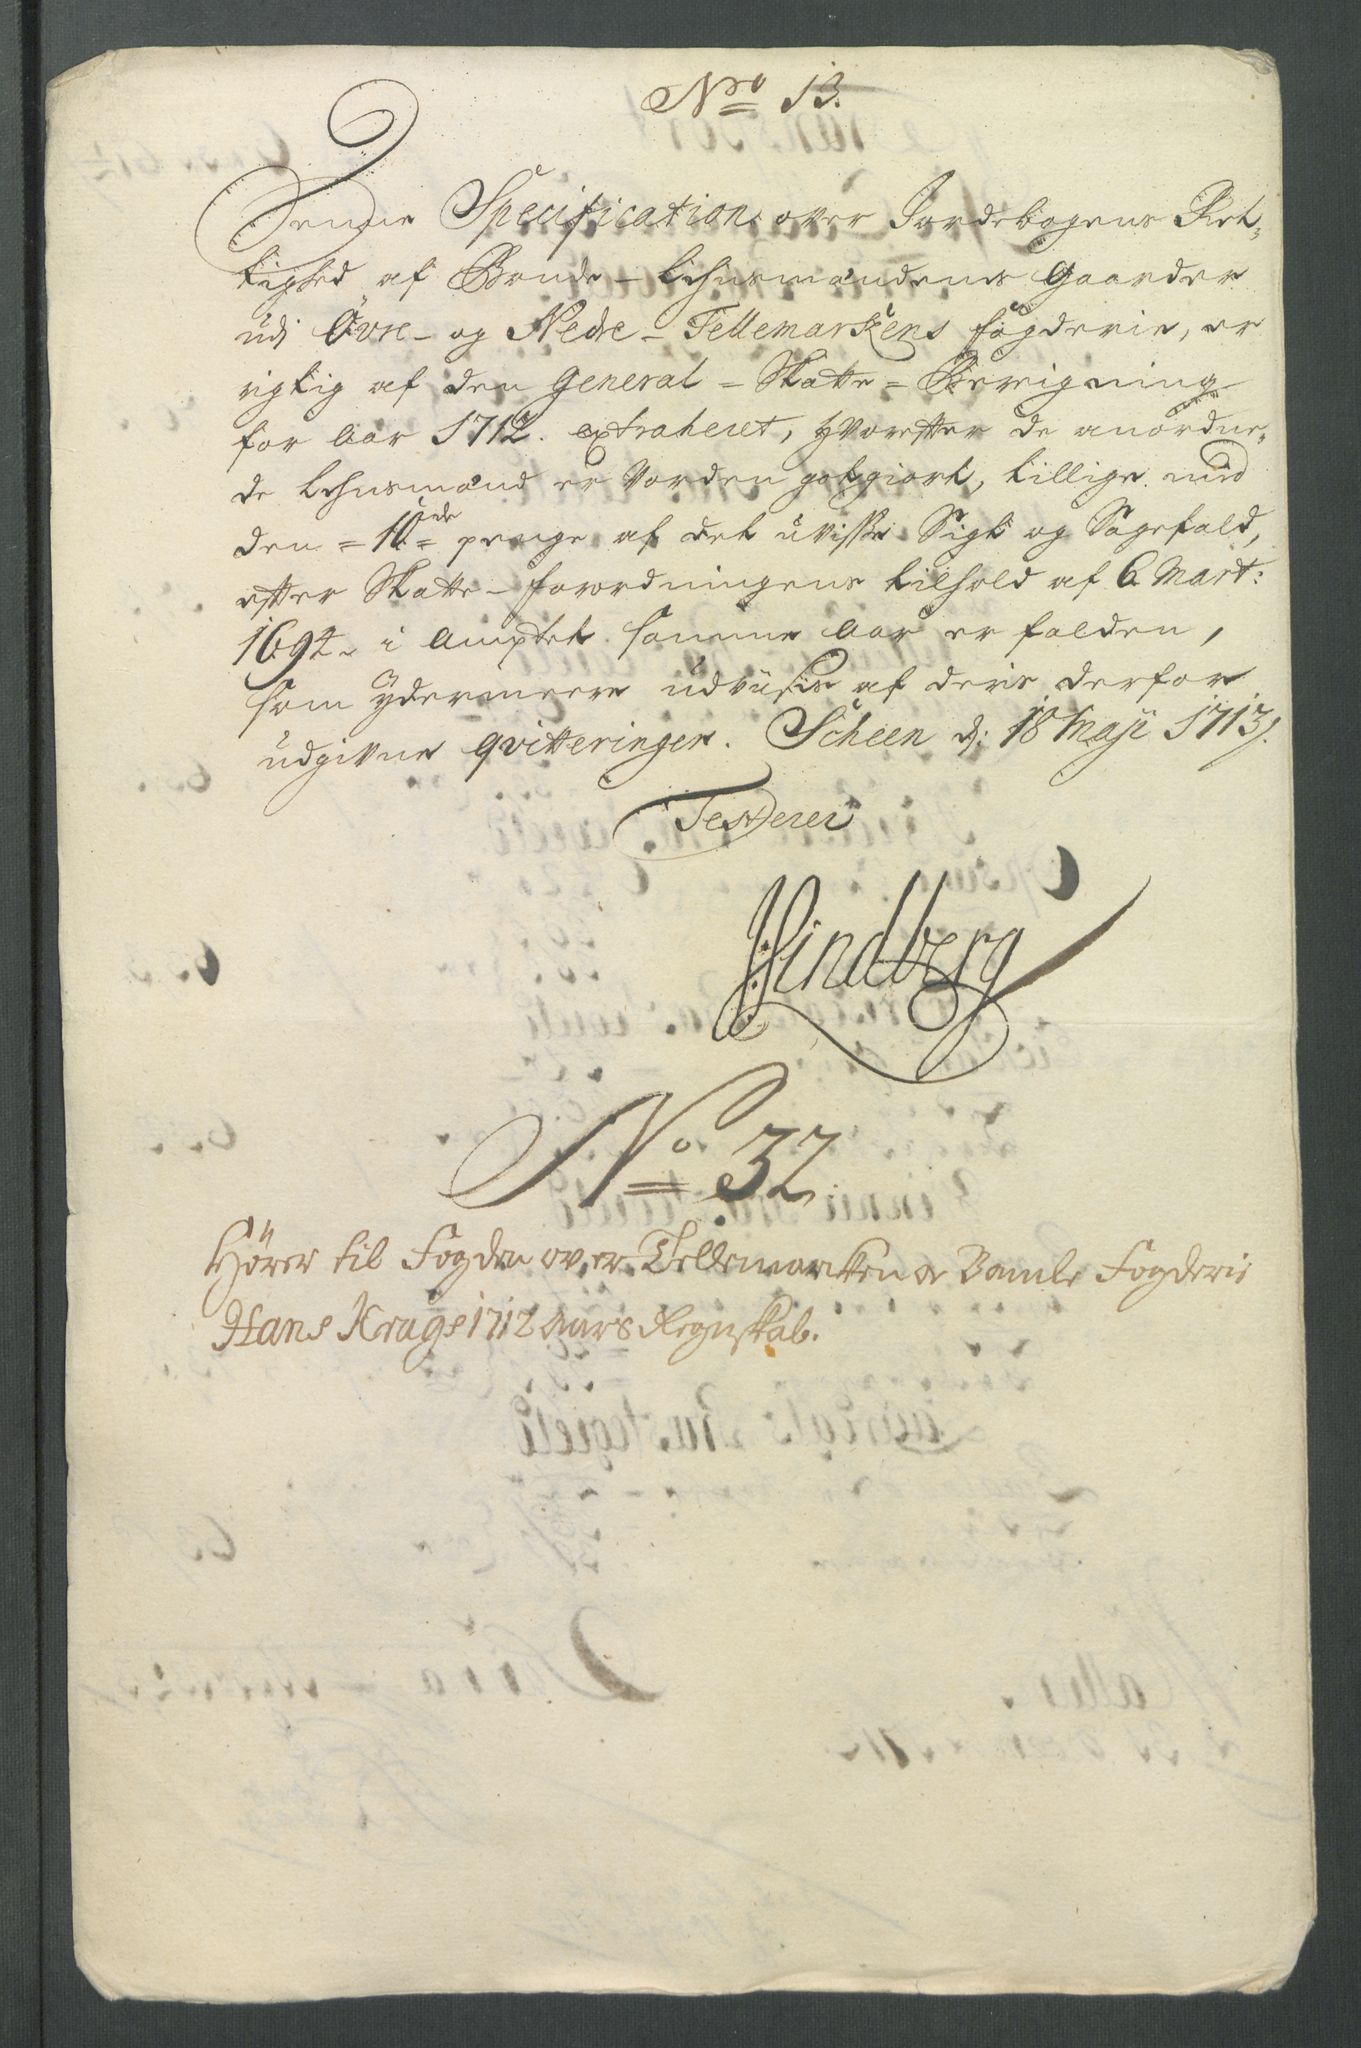 Nro 13.
Denne Specification over Jordebogens Ret-
tighed af Bonde-Lehnsmændenes Gaarder
udi Øvre- og Nedre-Tellemarkens fogderie, er
rigtig af den General-Skatte-Berigning
for Aar 1712. extraheret, hvorefter de anordne-
de Lehnsmænd er vorden gotgiort, tillige med
den =10de= penge af det uvisse Sigt og Sagefald,
efter Skatte-forordningens tilhold af 6 Mart:
1694 i Amptet samme Aar er falden,
som ydermeere udviises af deris derfor
udgivne qvitteringer. Scheen d: 18 Maji 1713.
Testerer
Lindberg
No 32
Hører til Fogden over Tellemarken oc Bamle Fogderie
Hans Krags 1712 Aars Regnskab.